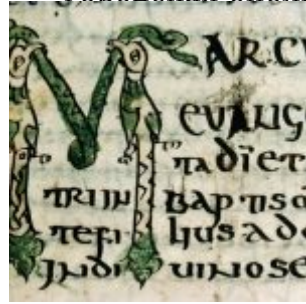 MARC
EVANG
TA DĪ ET
TRI IN BAPTIS
TE FILIUS AD
IN DIVINO SE